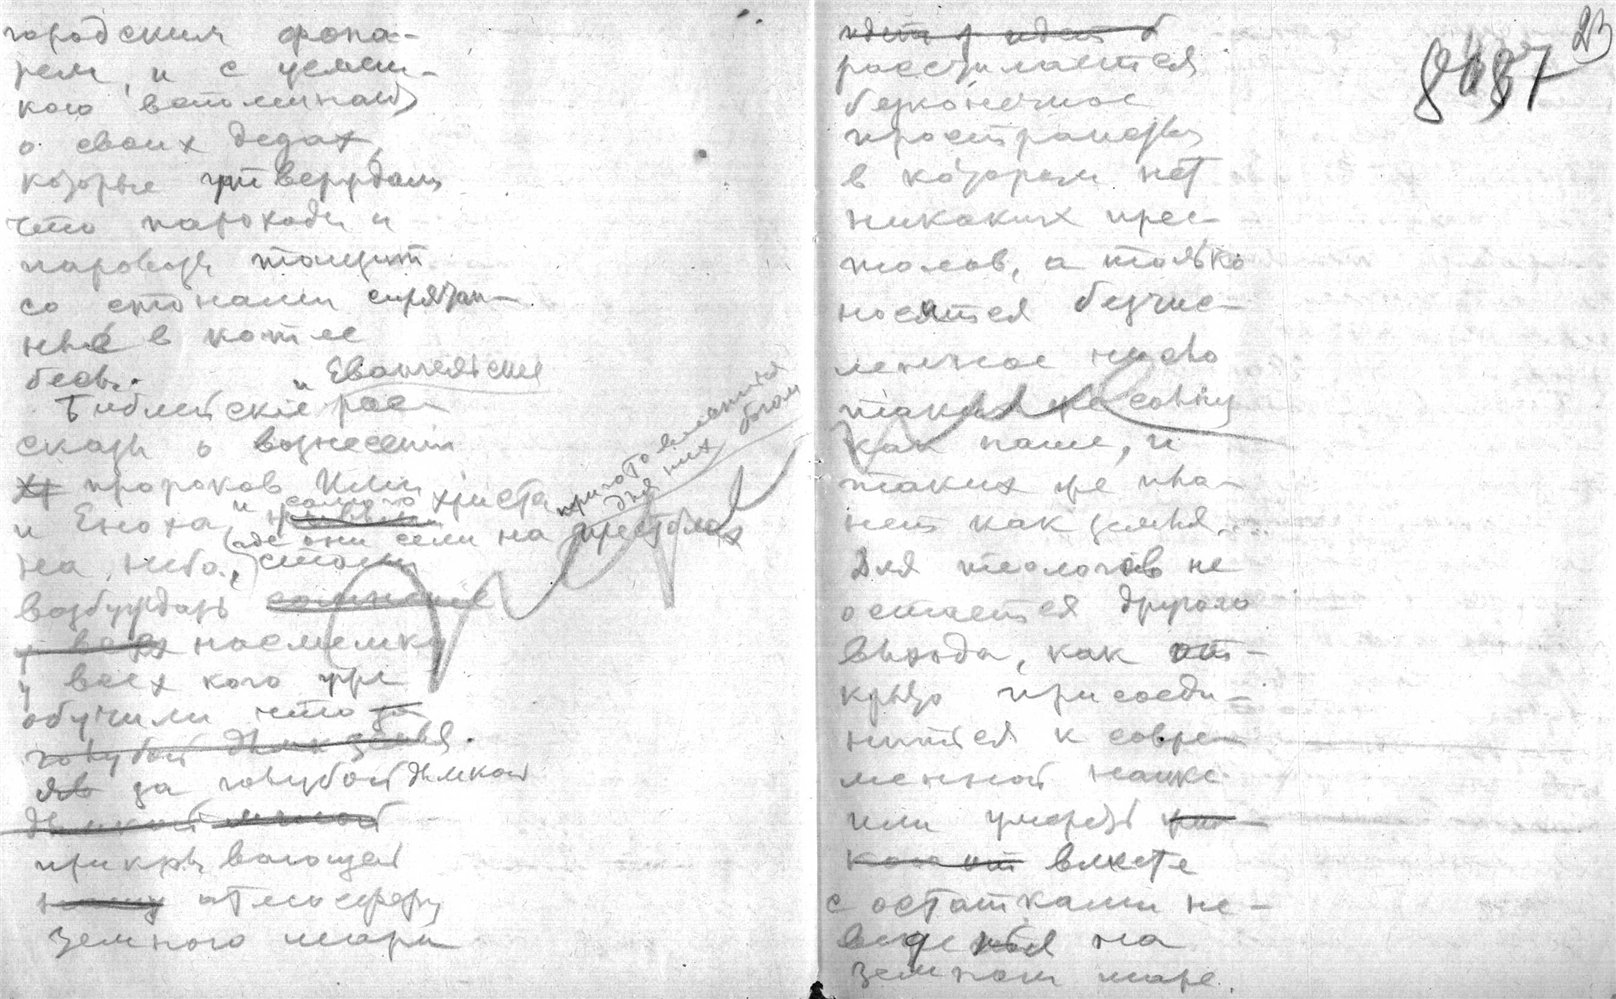 городским фона-
рем, и с усмеш-
кою вспоминать
о своих дедах,
которые утверждали
что пароходы и
паровозы тащит
со стонами спрятан-
ные в котле
бесы.
и Евангельские
Библейские рас-
сказы о вознесении
пророков Илии
и Еноха, и самого Христа
где они сели на престолах
приготовленных
для них богом
на небо, стали
возбуждать сомнение
у всех насмешку
у всех кого уже
обучили что за
голубой дымкой.
яв за голубой дымкой
дымкой
прикрывающей
нашу атмосферу
земного шара
23
8487
идет и идет б
расстилается
безконечное
пространство
в котором нет
никаких прес-
толов, а только
носятся безчис-
ленное число
таких же солнц
как наше, и
таких же пла-
нет как земля...
Для теологов не
остается другого
выхода, как от-
крыто присоеди-
ниться к совре-
менной науке
или умереть
вместе
с остатками не-
ведения на
земном шаре.